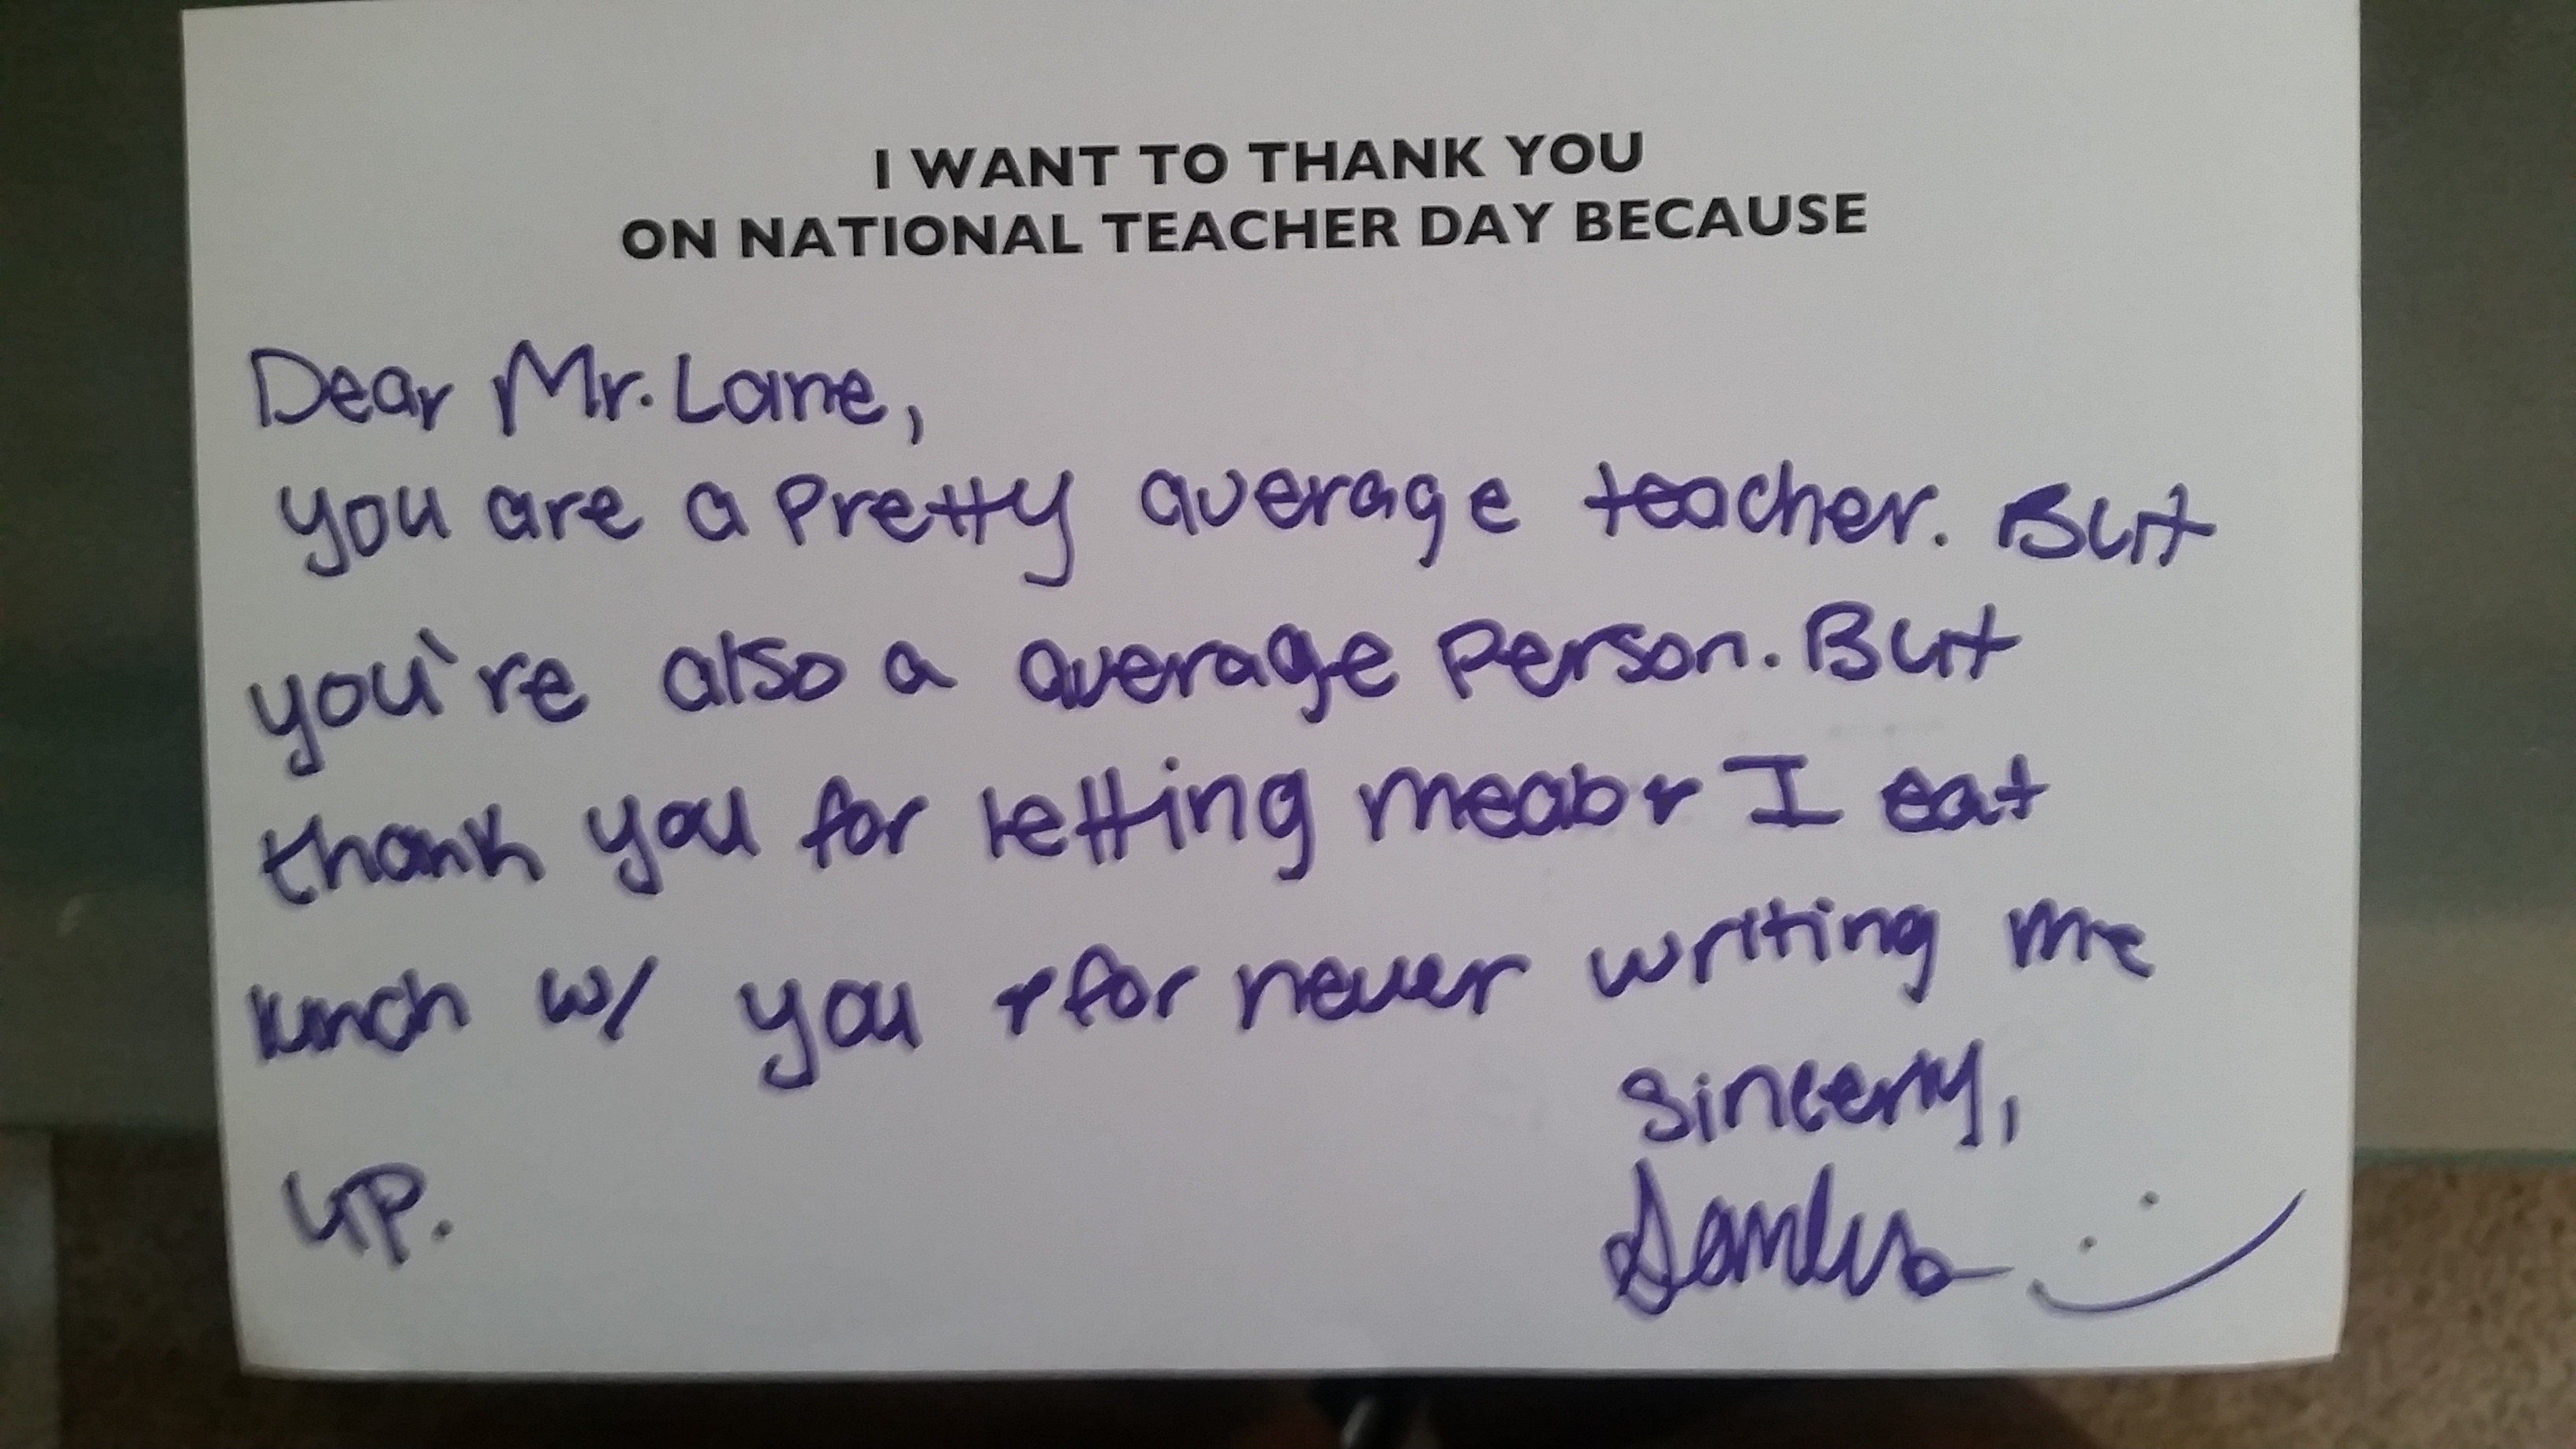 I WANT TO THANK YOU
ON NATIONAL TEACHER DAY BECAUSE
Dear Mr. Lane,
you are a pretty average teacher. But
you're also a average person. But
thank you for letting I eat
lunch w/ you + for never writing me
up.
Sincerly,